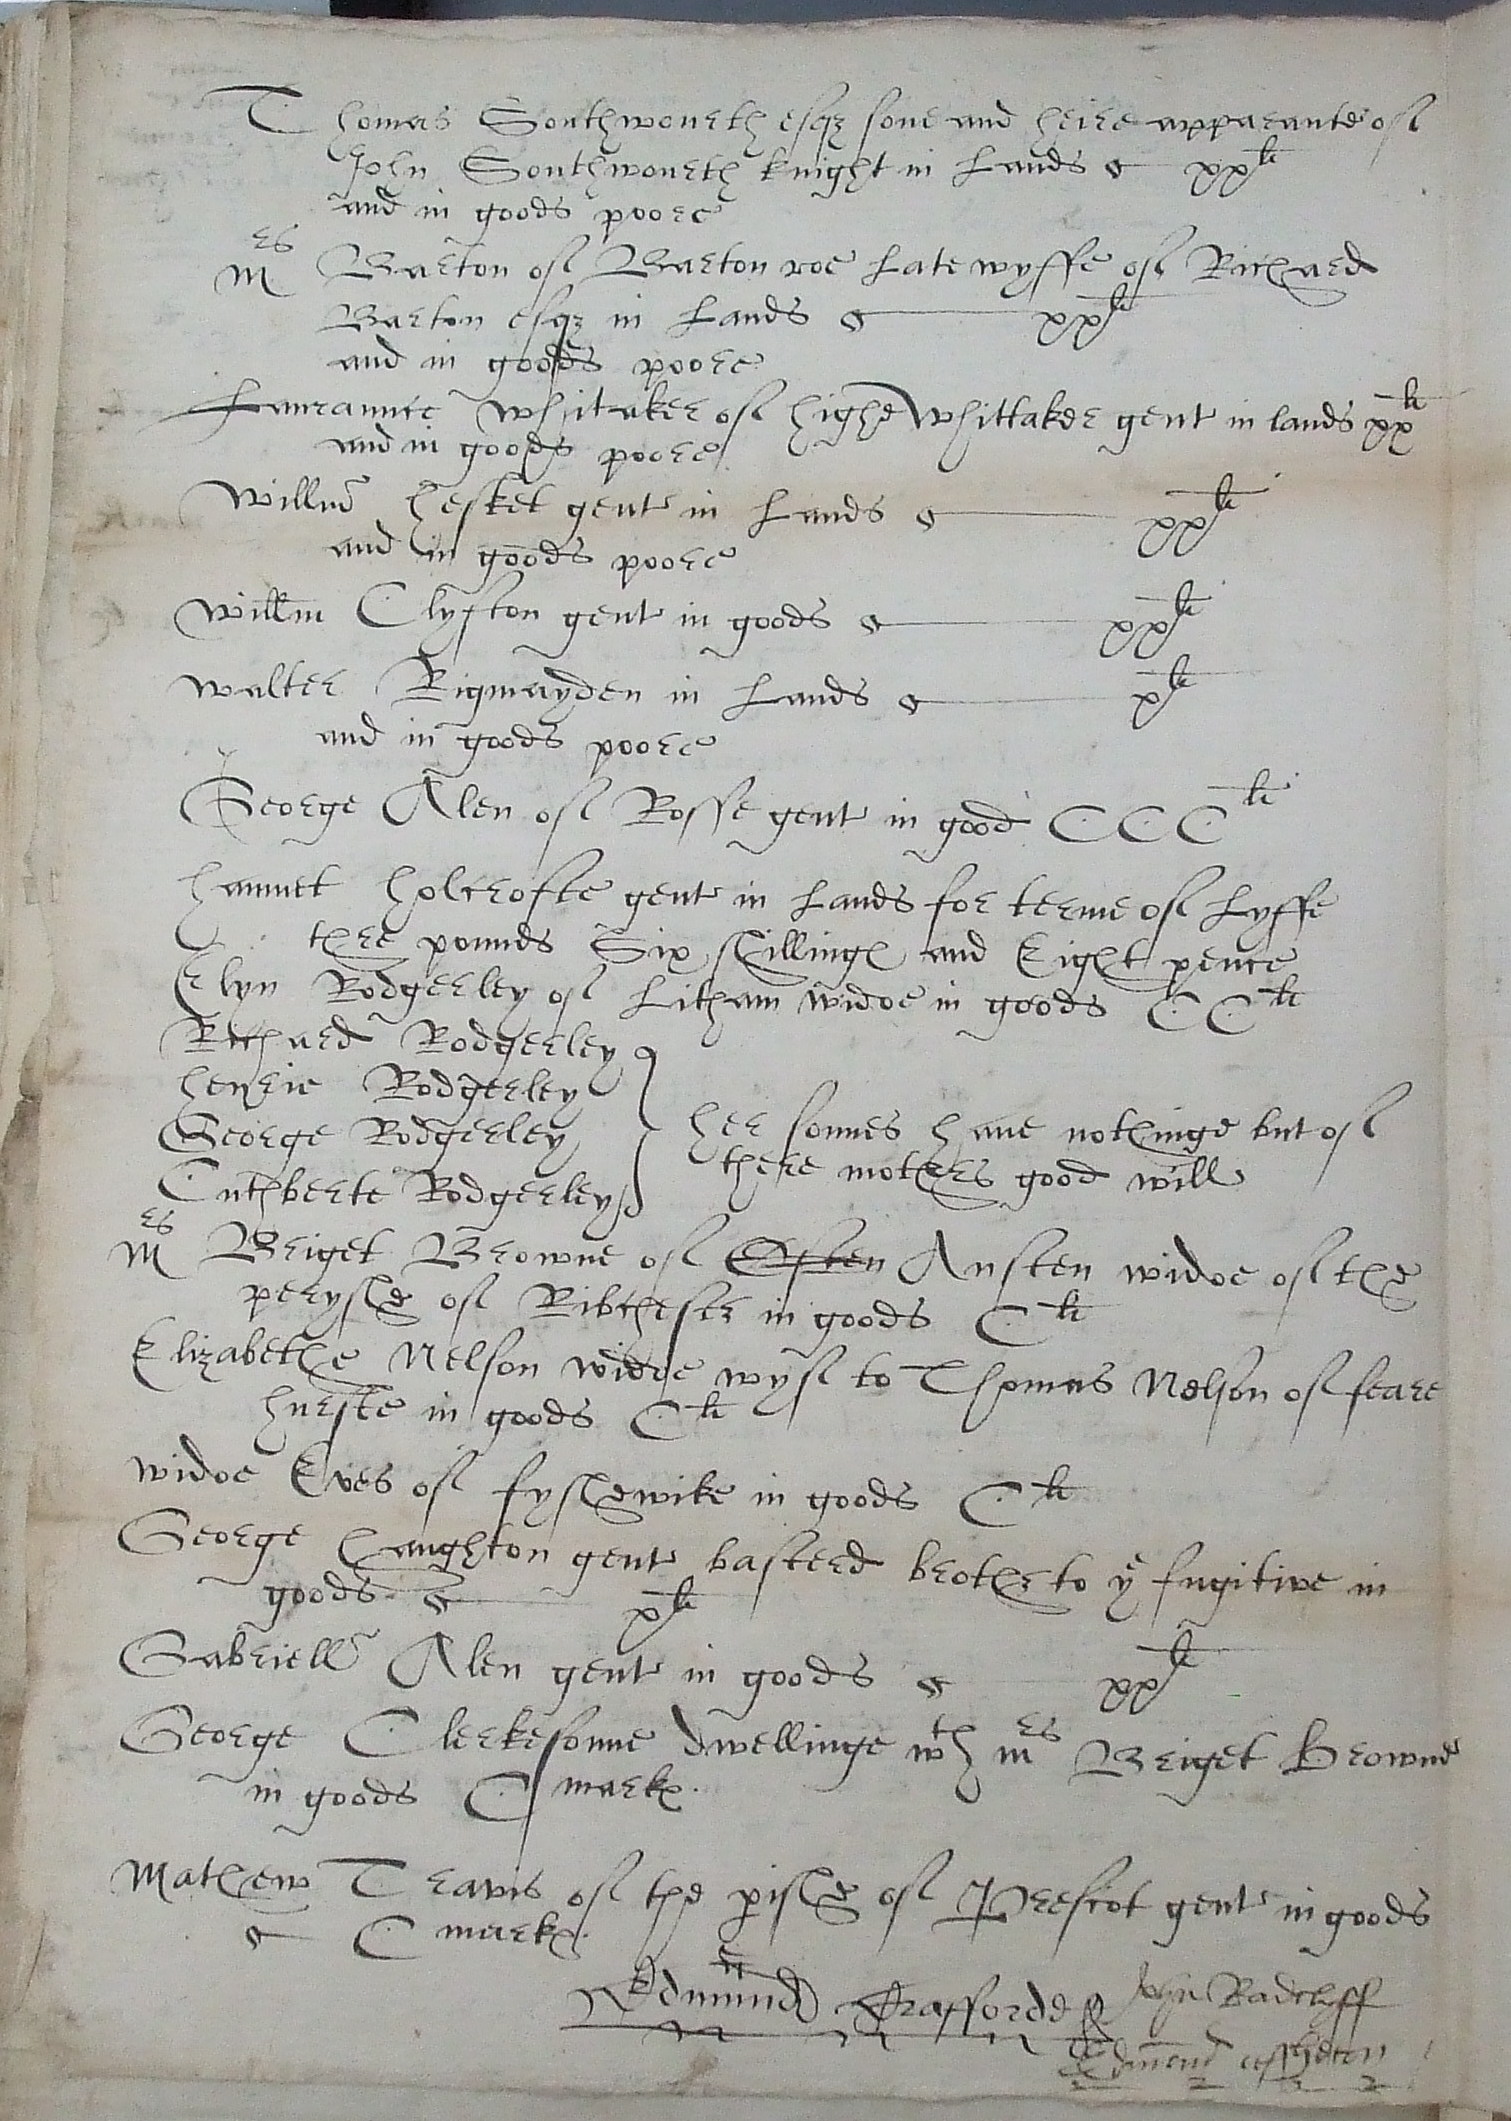 Thomas Southwourth esqr sone and heire apparante of
John Southwourth knight in Lands xxli
and in goods poore
Mres Barton of Barton roe Late wyffe of Richard
Barton esqr in Lands xxli
and in goods poore
Laurannce Whitaker of highe Whittaker gent in lands xxli
and in goods poore
Willm hesket gent in Lands xxli
and in goods poore
Willm Clyfton gent in goods xxli
Walter Rigmayden in Lands xli
and in goods poore
George Alen of Rosse gent in good CCCli
hamnet holcrofte gent in Lands for terme of Lyffe
thre pounds Six shillings and Eight pence
Elyn Rodgerley of Litham widoe in goods CCli
Richard Rodgerley
henrie Rodgerley
George Rodgerley
Cuthberte Rodgerley
her sonnes have nothinge but of
there mothers good will
Mres Briget Browne of Esten Ansten widoe of the
peryshe of Ribchestr in goods Cli
Elizabethe Nelson widoe wyf to Thomas Nelson of feare
hurste in goods Cli
widoe Eves of fyshewike in goods Cli
George haughton gent basterd brother to ye fugitive in
goods xli
Gabriell Alen gent in goods xxli
George Clerkesonne dwellinge wth mres Briget Browne
in goods C marks.
Mathew Travis of the pishe of Prescot gent in goods
C marks.
Edmund Trafforde John Radclyff
Edmend assheton